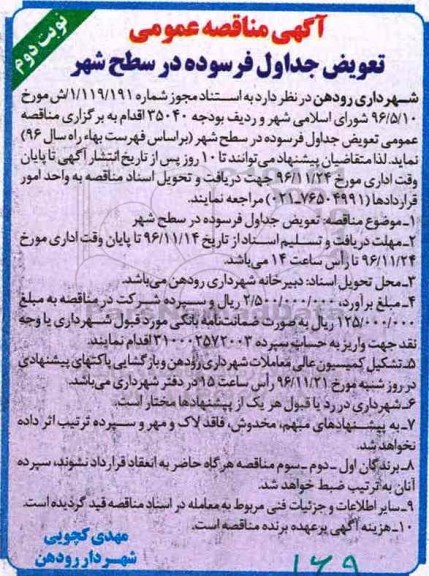 نوبت دوم
آگهی مناقصه عمومی
تعویض جداول فرسوده در سطح شهر
شهرداری رودهن در نظر دارد به استناد مجوز شماره ۱/۱۱۹/۱۹۱/ش مورخ
۹۶/۵/۱۰ شورای اسلامی شهر و ردیف بودجه ۳۵۰۴۰ اقدام به برگزاری مناقصه
عمومی تعویض جداول فرسوده در سطح شهر (براساس فهرست بهاء راه سال ۹۶)
نماید. لذا متقاضیان پیشنهاد می‌توانند تا ۱۰ روز پس از تاریخ انتشار آگهی تا پایان
وقت اداری مورخ ۹۶/۱۱/۲۴ جهت دریافت و تحویل اسناد مناقصه به واحد امور
قراردادها (۷۶۵۰۴۹۹۱-۰۲۱) مراجعه نمایند.
۱-موضوع مناقصه: تعویض جداول فرسوده در سطح شهر
۲-مهلت دریافت و تسلیم اسناد از تاریخ ۹۶/۱۱/۱۴ تا پایان وقت اداری مورخ
۹۶/۱۱/۲۴ تا رأس ساعت ۱۴ می‌باشد.
۳-محل تحویل اسناد: دبیرخانه شهرداری رودهن می‌باشد.
۴-مبلغ برآورد، ۲/۵۰۰/۰۰۰/۰۰۰ ریال و سپرده شرکت در مناقصه به مبلغ
۱۲۵/۰۰۰/۰۰۰ ریال به صورت ضمانت‌نامه بانکی مورد قبول شهرداری یا وجه
نقد جهت واریز به حساب سپرده ۳۱۰۰۰۲۵۷۲۰۰۳ اقدام نمایند.
۵-تشکیل کمیسیون عالی معاملات شهرداری رودهن و بازگشایی پاکتهای پیشنهادی
در روز شنبه مورخ ۹۶/۱۱/۲۱ رأس ساعت ۱۵ در دفتر شهرداری می‌باشد.
۶-شهرداری در رد یا قبول هر یک از پیشنهادها مختار است.
۷-به پیشنهادهای مبهم، مخدوش، فاقد لاک و مهر و سپرده ترتیب اثر داده
نخواهد شد.
۸-برندگان اول -دوم -سوم مناقصه هرگاه حاضر به انعقاد قرارداد نشوند، سپرده
آنان به ترتیب ضبط خواهد شد.
۹-سایر اطلاعات و جزئیات فنی مربوط به معامله در اسناد مناقصه قید گردیده است.
۱۰-هزینه آگهی برعهده برنده مناقصه است.
مهدی کچویی
شهردار رودهن
۱۶۹